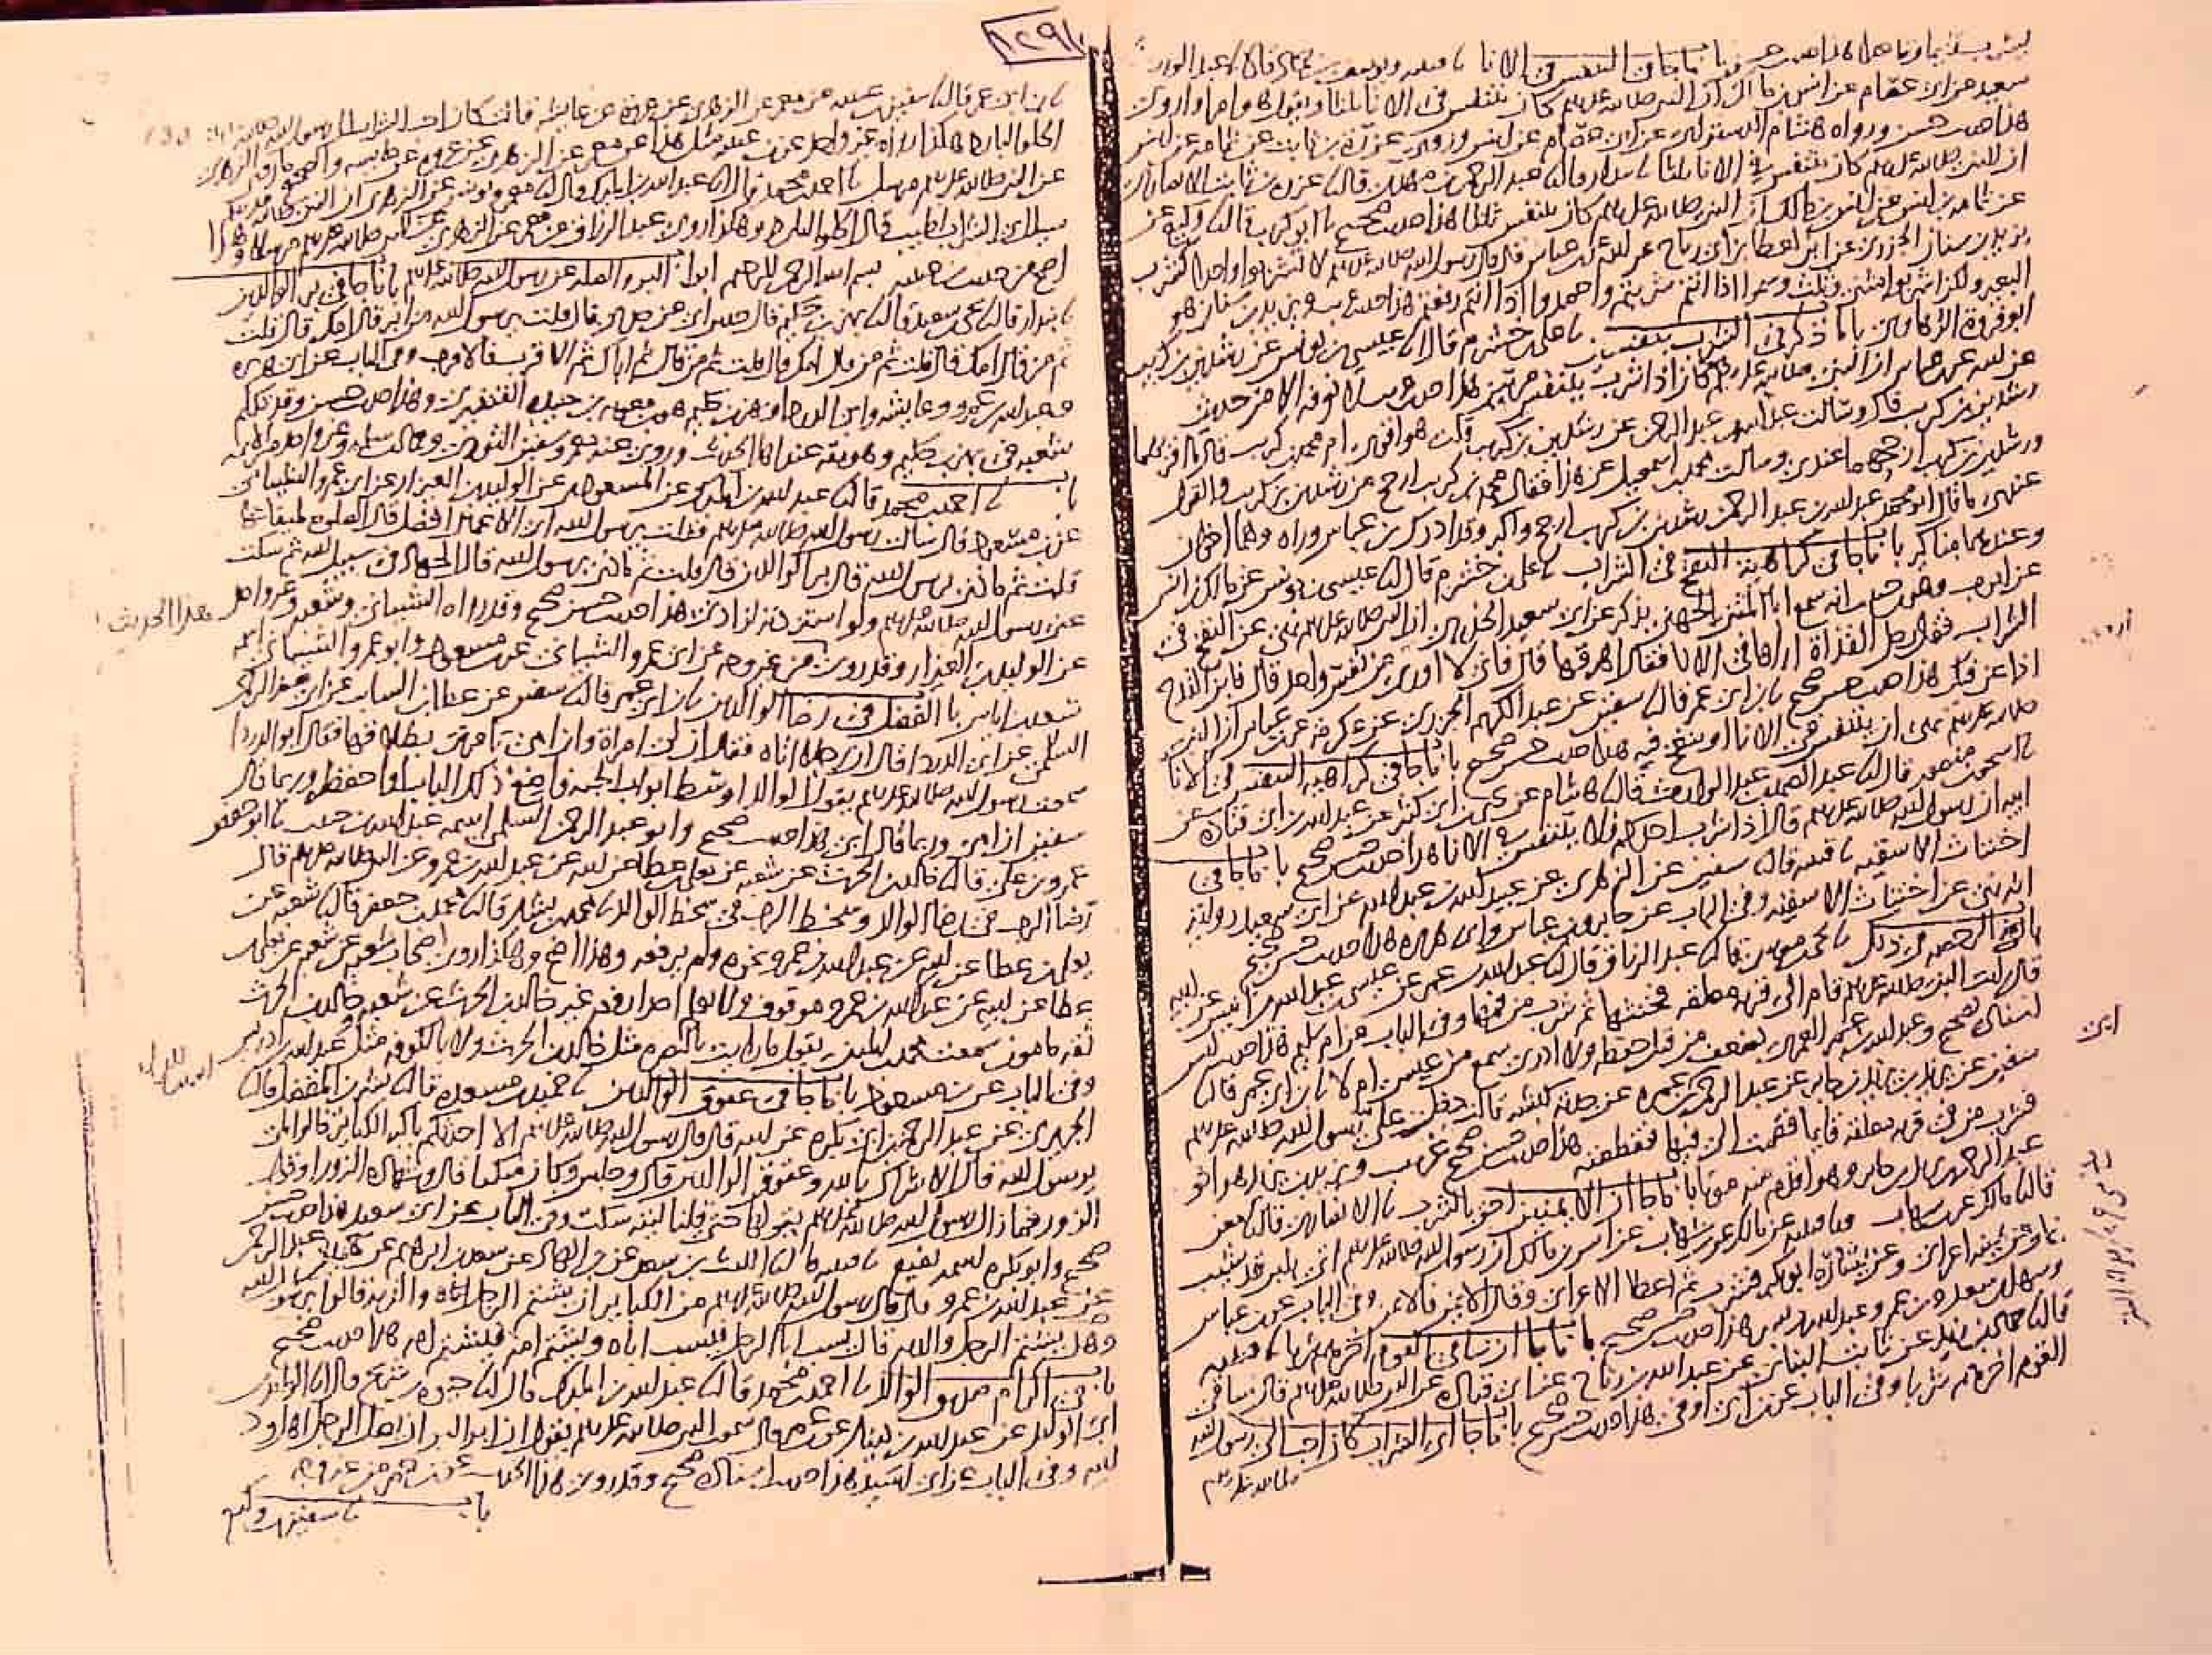 باب ما جا في التنفس في الانا
سعيد عن ابي عصام عن انس بن مالك ان النبي صلى الله عليه وسلم كان يتنفس في الانا ثلثا ويقول هو امرا واروى
هذا حديث حسن ورواه هشام الدستوائي عن ابي عصام عن انس وروى عزرة بن ثابت عن ثمامة عن انس
ان النبي صلى الله عليه وسلم كان يتنفس في الانا ثلثا بندار قال عبد الرحمن بن مهدي قال عزرة بن ثابت الانصاري
عن ثمامة بن انس عن انس بن مالك ان النبي صلى الله عليه وسلم كان يتنفس ثلثا هذا حديث صحيح ابو كريب قال وكيع عن
يزيد بن سنان الجزري عن ابن لعطا بن ابي رباح عن ابيه عن ابن عباس قال قال رسول الله صلى الله عليه وسلم لا تشربوا واحدا كشرب
البعير ولكن اشربوا مثنى وثلث وسموا اذا انتم شربتم واحمدوا اذا انتم رفعتم هذا حديث غريب ويزيد بن سنان هو
ابو فروة الرهاوي باب ما ذكر في الشرب بنفسين علي بن خشرم قال عيسى بن يونس عن رشدين بن كريب
عن ابيه عن ابن عباس ان النبي صلى الله عليه وسلم كان اذا شرب يتنفس مرتين هذا حديث غريب لا نعرفه الا من حديث
رشدين بن كريب قال وسالت عبد الله بن عبد الرحمن عن رشدين بن كريب قلت هو اقوى ام محمد بن كريب قال ما اقربهما
ورشدين بن كريب ارجحهما عندي وسالت محمد بن اسمعيل عن هذا فقال محمد بن كريب ارجح من رشدين بن كريب والقول
عندي ما قال ابو محمد عبد الله بن عبد الرحمن رشدين بن كريب ارجح واكبر وقد ادرك ابن عباس وراه وهما اخوان
وعندهما مناكير باب ما جا في كراهية النفخ في الشراب علي بن خشرم قال عيسى بن يونس عن مالك بن انس
عن ايوب وهو ابن حبيب انه سمع ابا المثنى الجهني يذكر عن ابي سعيد الخدري ان النبي صلى الله عليه وسلم نهى عن النفخ في
الشراب فقال رجل القذاة اراها في الانا فقال اهرقها قال فاني لا اروى من نفس واحد قال فابن القدح
اذا عن فيك هذا حديث حسن صحيح ابن ابي عمر قال سفين عن عبد الكريم الجزري عن عكرمة عن ابن عباس ان النبي
صلى الله عليه وسلم نهى ان يتنفس في الانا او ينفخ فيه هذا حديث حسن صحيح باب ما جا في كراهية التنفس في الانا
اسحق بن منصور قال عبد الصمد بن عبد الوارث قال هشام عن يحيى بن ابي كثير عن عبد الله بن ابي قتادة عن
ابيه ان رسول الله صلى الله عليه وسلم قال اذا شرب احدكم فلا يتنفس في الانا هذا حديث حسن صحيح باب ما جا في
اختناث الاسقية قتيبة قال سفين عن الزهري عن عبيد الله بن عبد الله عن ابي سعيد رواية
انه نهى عن اختناث الاسقية وفي الباب عن جابر وابن عباس وابي هريرة هذا حديث حسن صحيح
باب الرخصة في ذلك يحيى بن موسى قال عبد الرزاق قال عبد الله بن عمر عن عيسى بن عبد الله بن انيس عن ابيه
قال رايت النبي صلى الله عليه وسلم قام الى قربة معلقة فخنثها ثم شرب من فيها وفي الباب عن ام سليم هذا حديث ليس
اسناده بصحيح وعبد الله بن عمر العمري يضعف من قبل حفظه ولا ادري سمع من عيسى ام لا ابن ابي عمر قال
سفين عن يزيد بن يزيد بن جابر عن عبد الرحمن بن ابي عمرة عن جدته كبشة قالت دخل علي رسول الله صلى الله عليه وسلم
فشرب من في قربة معلقة قايما فقمت الى فيها فقطعته هذا حديث حسن صحيح غريب ويزيد بن يزيد هو اخو
عبد الرحمن بن يزيد بن جابر وهو اقدم منه موتا باب ما جا ان الايمنين احق بالشرب الانصاري قال معن
قال مالك عن ابن شهاب وقتيبة عن مالك عن ابن شهاب عن انس بن مالك ان رسول الله صلى الله عليه وسلم اتي بلبن قد شيب
بما وعن يمينه اعرابي وعن يساره ابو بكر فشرب ثم اعطا الاعرابي وقال الايمن فالايمن وفي الباب عن ابن عباس
وسهل بن سعد وابن عمر وعبد الله بن بسر هذا حديث حسن صحيح باب ما جا ان ساقي القوم اخرهم شربا قتيبة
قال حماد بن زيد عن ثابت البناني عن عبد الله بن رباح عن ابي قتادة عن النبي صلى الله عليه وسلم قال ساقي
القوم اخرهم شربا وفي الباب عن ابن ابي اوفى هذا حديث حسن صحيح باب ما جا اي الشراب كان احب الى رسول الله
صلى الله عليه وسلم
ابن
١٢٩
ابن ابي عمر قال سفين بن عيينة عن معمر عن الزهري عن عروة عن عايشة قالت كان احب الشراب الى رسول الله صلى الله عليه وسلم
الحلو البارد هكذا رواه غير واحد عن ابن عيينة مثل هذا عن معمر عن الزهري عن عروة عن عايشة والصحيح ما روى الزهري
عن النبي صلى الله عليه وسلم مرسل احمد بن محمد قال عبد الله بن المبارك قال معمر ويونس عن الزهري ان النبي صلى الله عليه وسلم
سيل اي الشراب اطيب قال الحلو البارد وهكذا روى عبد الرزاق عن معمر عن الزهري عن النبي صلى الله عليه وسلم مرسلا وهذا
اصح من حديث ابن عيينة بسم الله الرحمن الرحيم ابواب البر والصلة عن رسول الله صلى الله عليه وسلم باب ما جا في بر الوالدين
بندار قال يحيى بن سعيد قال بهز بن حكيم قال حدثني ابي عن جدي قال قلت يرسول الله من ابر قال امك قال قلت
ثم من قال امك قال قلت ثم من قال امك قال قلت ثم من قال ثم اباك ثم الاقرب فالاقرب وفي الباب عن ابي هريرة
وعبد الله بن عمرو وعايشة وابي الدرداء وبهز بن حكيم هو ابن معوية بن حيدة القشيري وهذا حديث حسن وقد تكلم
شعبة في بهز بن حكيم وهو ثقة عند اهل الحديث وروى عنه معمر وسفين الثوري وحماد بن سلمة وغير واحد من الايمة
باب احمد بن محمد قال عبد الله بن المبارك عن المسعودي عن الوليد بن العيزار عن ابي عمرو الشيباني
عن ابن مسعود قال سالت رسول الله صلى الله عليه وسلم فقلت يرسول الله اي الاعمال افضل قال الصلوة لميقاتها
قلت ثم ماذا يرسول الله قال بر الوالدين قال قلت ثم ماذا يرسول الله قال الجهاد في سبيل الله ثم سكت
عني رسول الله صلى الله عليه وسلم ولو استزدته لزادني هذا حديث حسن صحيح وقد رواه الشيباني وشعبة وغير واحد
هذا الحديث
عن الوليد بن العيزار وقد روي من غير وجه عن ابي عمرو الشيباني عن ابن مسعود وابو عمرو الشيباني اسمه
سعد بن اياس باب الفضل في رضا الوالدين ابن ابي عمر قال سفين عن عطا بن السايب عن ابي عبد الرحمن
السلمي عن ابي الدرداء قال ان رجلا اتاه فقال ان لي امراة وان امي تامرني بطلاقها فقال ابو الدرداء
سمعت رسول الله صلى الله عليه وسلم يقول الوالد اوسط ابواب الجنة فاضع ذلك الباب او احفظه وربما قال
سفين ان امي وربما قال ابي هذا حديث صحيح وابو عبد الرحمن السلمي اسمه عبد الله بن حبيب ابو حفص
عمرو بن علي قال خالد بن الحرث عن شعبة عن يعلى بن عطا عن ابيه عن عبد الله بن عمرو عن النبي صلى الله عليه وسلم قال
رضا الرب في رضا الوالد وسخط الرب في سخط الوالد محمد بن بشار قال محمد بن جعفر قال شعبة عن
يعلى بن عطا عن ابيه عن عبد الله بن عمرو نحوه ولم يرفعه وهذا اصح وهكذا روى اصحاب شعبة عن شعبة عن يعلى بن
عطا عن ابيه عن عبد الله بن عمرو موقوفا ولا نعلم احدا رفعه غير خالد بن الحرث عن شعبة وخالد بن الحرث
ثقة مامون سمعت محمد بن المثنى يقول ما رايت بالبصرة مثل خالد بن الحرث ولا بالكوفة مثل عبد الله بن ادريس
وفي الباب عن ابن مسعود باب ما جا في عقوق الوالدين حميد بن مسعدة قال بشر بن المفضل قال
الجريري عن عبد الرحمن بن ابي بكرة عن ابيه قال قال رسول الله صلى الله عليه وسلم الا احدثكم باكبر الكباير قالوا بلى
يرسول الله قال الاشراك بالله وعقوق الوالدين قال وجلس وكان متكيا قال وشهادة الزور او قول
الزور فما زال رسول الله صلى الله عليه وسلم يقولها حتى قلنا ليته سكت وفي الباب عن ابي سعيد هذا حديث حسن
صحيح وابو بكرة اسمه نفيع قتيبة قال الليث بن سعد عن ابن الهاد عن سعد بن ابرهيم عن حميد بن عبد الرحمن
عن عبد الله بن عمرو قال قال رسول الله صلى الله عليه وسلم من الكباير ان يشتم الرجل والديه قالوا يرسول الله
وهل يشتم الرجل والديه قال يسب ابا الرجل فيسب اباه ويشتم امه فيشتم امه هذا حديث صحيح
باب في اكرام صديق الوالد احمد بن محمد قال عبد الله بن المبارك قال حيوة بن شريح قال الوليد بن
ابي الوليد عن عبد الله بن دينار عن ابن عمر قال سمعت النبي صلى الله عليه وسلم يقول ان ابر البر ان يصل الرجل اهل ود
ابيه وفي الباب عن ابي اسيد هذا حديث اسناده صحيح وقد روي هذا الحديث عن ابن عمر من غير وجه
باب سفين بن وكيع